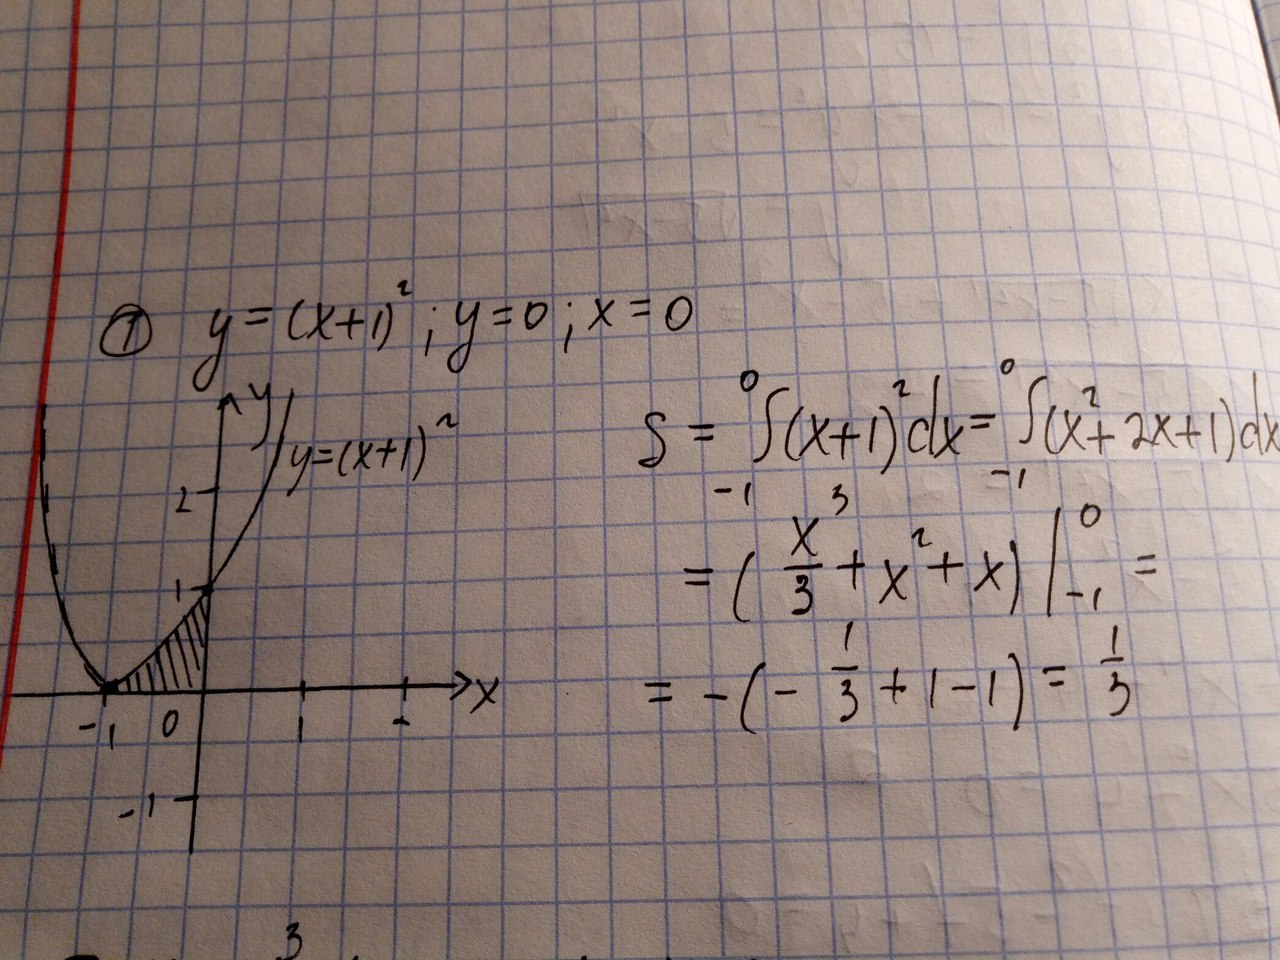 ① y = (x+1)² ; y = 0 ; x = 0
y
y=(x+1)²
2
1
x
-1 0 1 -
-1
S = ₋₁⁰∫(x+1)²dx = ₋₁⁰∫(x²+2x+1)dx
= (x³/3 + x² + x) |₋₁⁰ =
= -(- 1/3 + 1 - 1) = 1/3
3